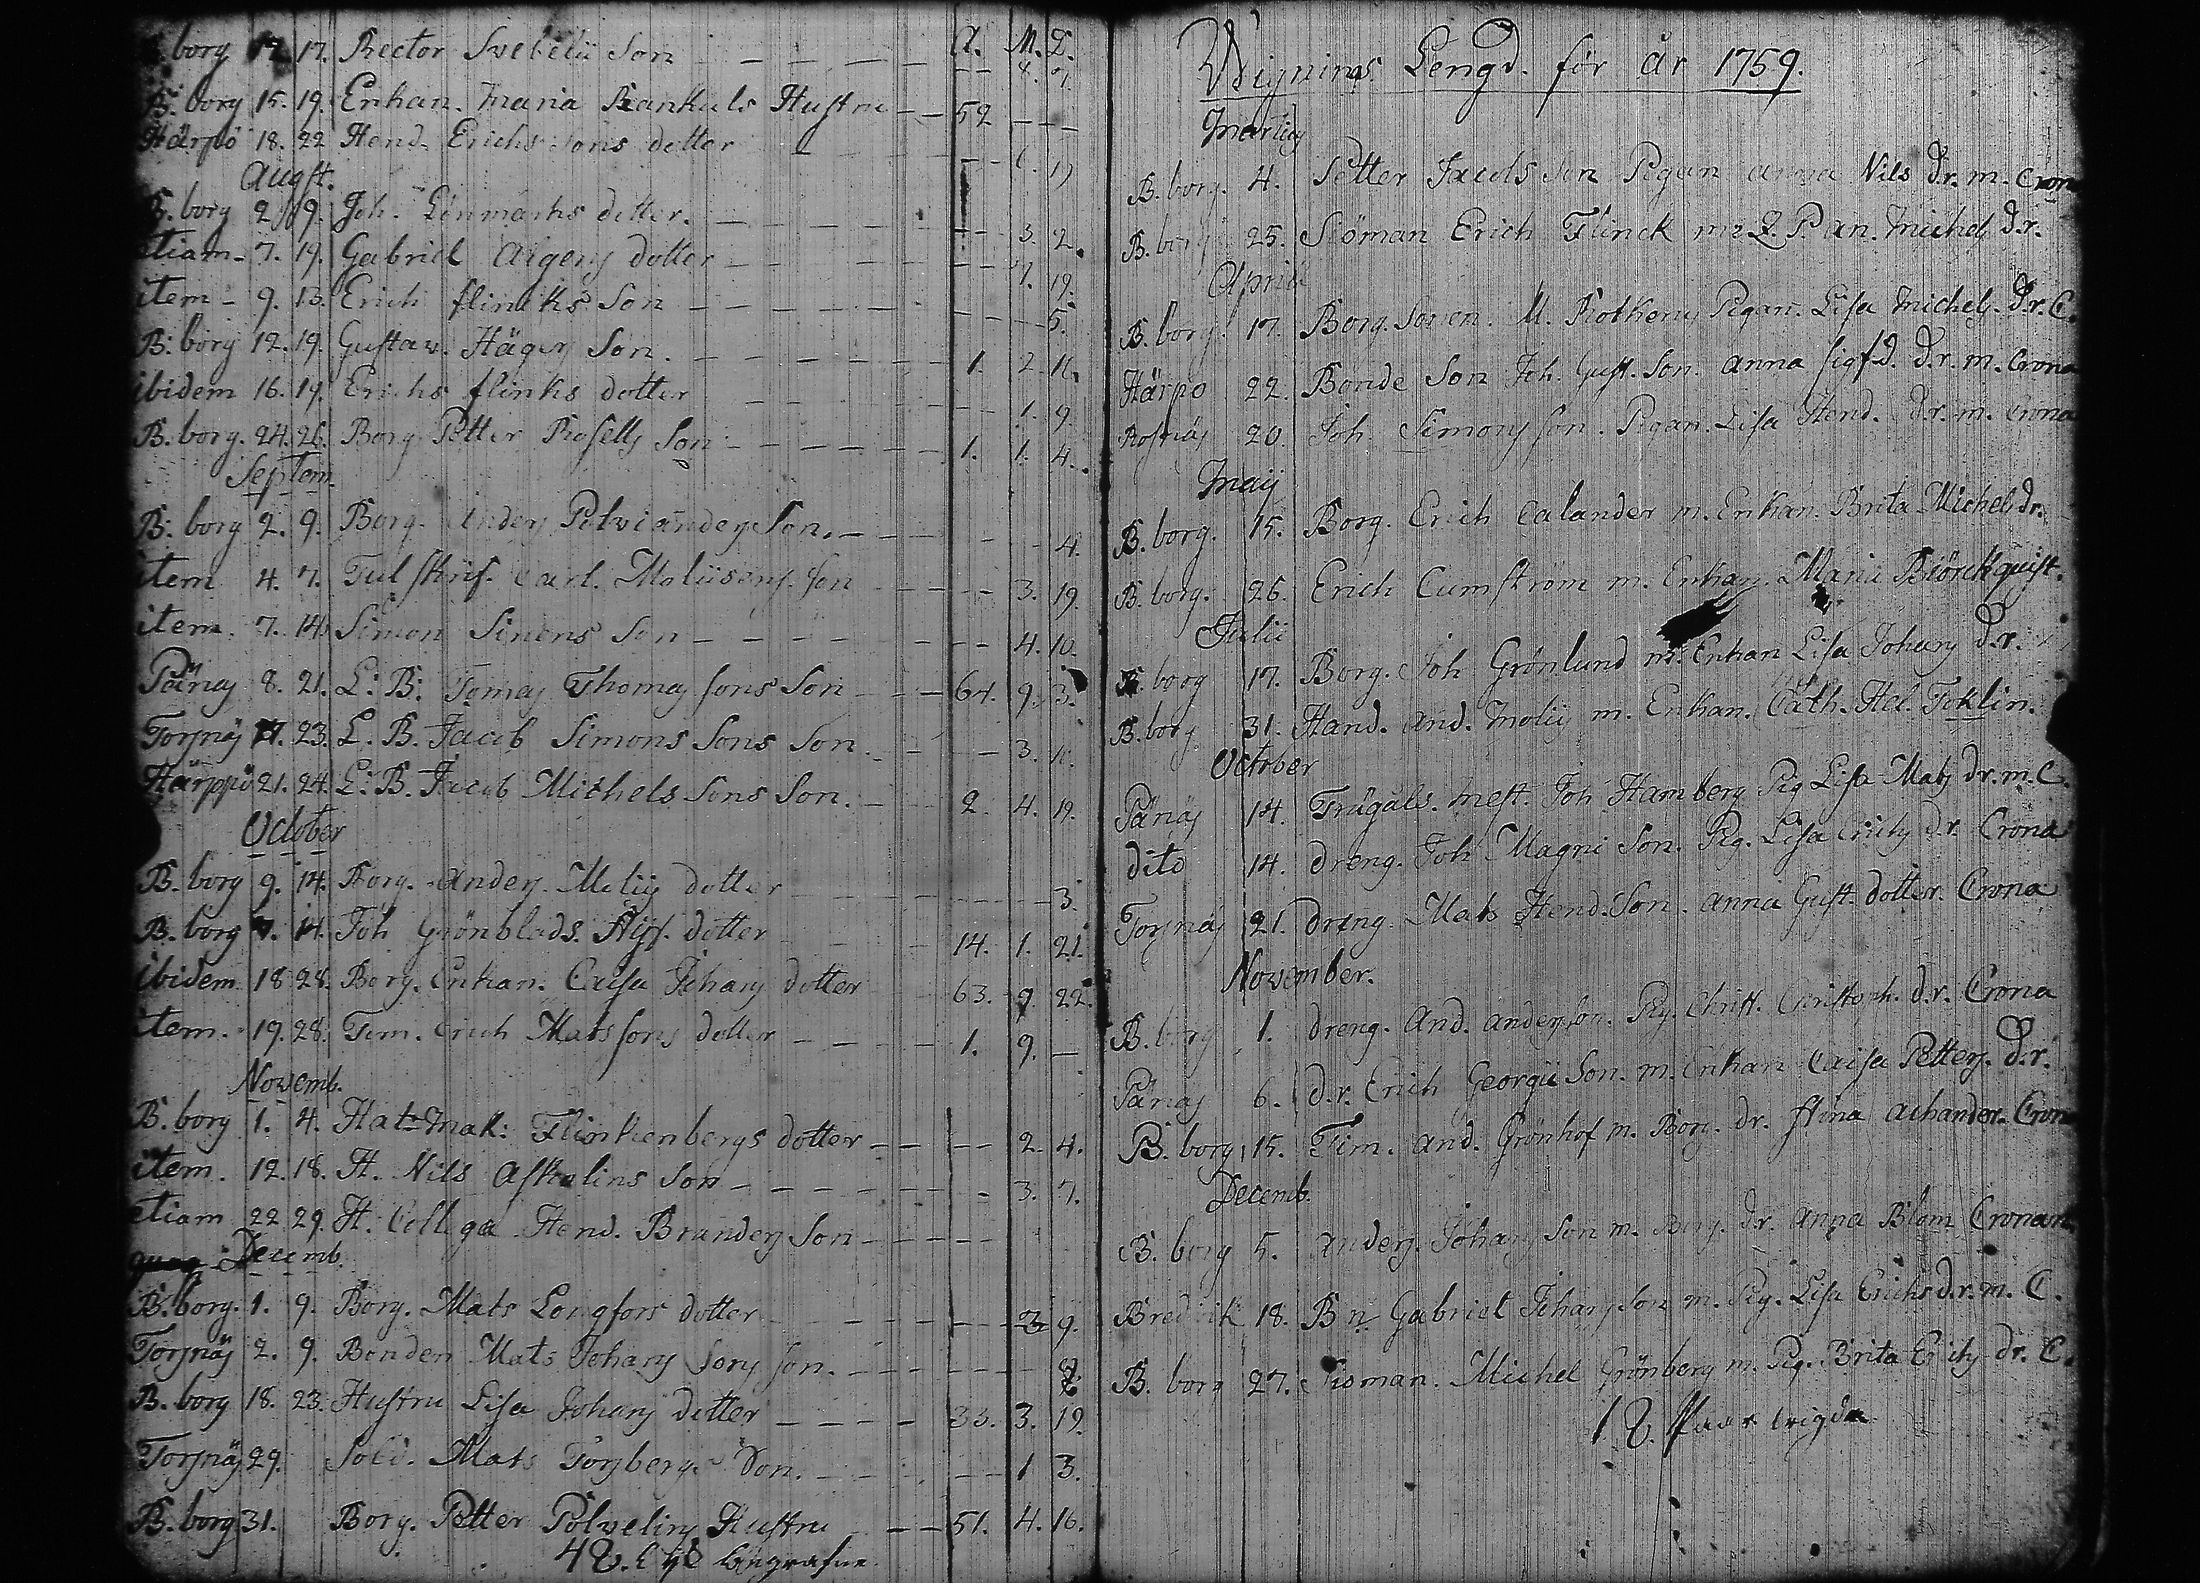 A. M. D.
B. borg 12 17. Rector Svebelii Son — — 4. 7.
B. borg 15. 19. Enkan. Maria Hustru — — 52 — —
Härpö 18. 22 Hend. Erichs sons dotter — — 19
Augst.
B. borg 2. 9. Joh. Lönmarks dotter. — — 3. 2.
etiam - 7. 19. Gabriel Algers dotter — — 7. 19.
item - 9. 13. Erich flincks Son — — 5.
B. borg 12. 19. Gustav. Hägers Son. — — 1. 2. 16.
ibidem 16. 19. Erichs flinks dotter — — 1. 9.
B. borg. 24. 26. Borg. Petter Rosells Son — — 1. 1. 4.
Septem.
B. borg 2. 9. Borg. Anders Polviander Son. — — 4.
item 4. 7. Tul skrif. Carl. Son — — 3. 19.
item. 7. 14. Simon Simons Son — — 4. 10.
Pänäs 8. 21. L: B: Tomas Thomas sons Son — — 64. 9. 3.
Torsnäs 17. 23. L. B. Jacob Simons Sons Son. — — 3. 11.
Härppö 21. 24. L: B. Jacob Michels Sons Son. — 2. 4. 19.
October
B. borg 9. 14. Borg. Anders Molijs dotter — — 3.
B. borg 7. 14. Joh Grönblads. dotter — — 14. 1. 21.
ibidem 18 28. Borg. Enkan. Caisa Johans dotter — 63. 9. 22.
item. 19. 28. Tim. Erich Mats sons dotter — — 1. 9. —
Novemb.
B. borg 1. 4. Hat-mak: Flinkenbergs dotter — — 2. 4.
item. 12. 18. H. Nils Askolins Son — — 3. 7.
etiam 22. 29. H. Collega Hend. Branders Son — —
Decemb.
B. borg. 1. 9. Borg. Mats Longfors dotter — — 3 9.
Torsnäs 2. 9. Bonden Mats Johans sons son. — —
B. borg 18. 23. Hustru Lisa Johans dotter — — 33. 3. 19.
Torsnäs 29. Sold. Mats Torsbergs Son. — — 1 3.
B. borg 31. Borg. Petter Polvelins Hustru — — 51. 4. 16.
48. Lijk begrafne
Wignings Lengd. för år 1759.
Martius
B. borg. 4. Petter Jacobs Son Pigan Anna Nils dr. m. Cron
B. borg 25. Siöman Erich Flinck m. Michels dr.
Aprill
B. borg 17. Borg. Sonen. M. Rothens Pigan. Lisa Michels. dr. C.
Härpö 22. Bonde Son Joh. Gust. Son. Anna Sigfd. dr. m. Crona
Rosnäs 20. Joh Simons son. Pigan. Lisa Hend. dr. m. Crona
Maij
B. borg. 15. Borg. Erich Calander m. Enkan. Brita Michels dr.
B. borg. 26. Erich Cumström m. Enkan. Maria Biörckquist.
Julii
B. borg 17. Borg. Joh Grönlund m. Enkan Lisa Johans dr.
B. borg 31. Hand. And. Molijs m. Enkan. Cath. Hel. Foklin.
October
Pänäs 14. Trägåls. Mest. Joh Hamberg Pig Lisa Mats dr. m. C.
dito 14. dreng. Joh Magni Son. Pig. Lisa Erichs dr. Crona
Torsnäs 21. dreng. Mats Hend. Son. Anna Gust. dotter. Crona
November.
B. borg 1. dreng. And. Anders son. Pig. Christ. Christoph. dr. Crona
Pänäs 6. dr. Erich Georgii Son. m. Enkan Caisa Petters. dr.
B. borg 15. Tim. And. Grönhof m. Borg. dr. Stina Achander. Cron
Decemb.
B. borg 5. Anders Johans Son m. Borg. dr. Anna Blom Cronan
Bredvik 18. Bn. Gabriel Johans son m. Pig. Lisa Erichs dr. m. C.
B. borg 27. Sioman. Michel Grönberg m. Pig. Brita Erichs dr. C.
18. Paar wigda